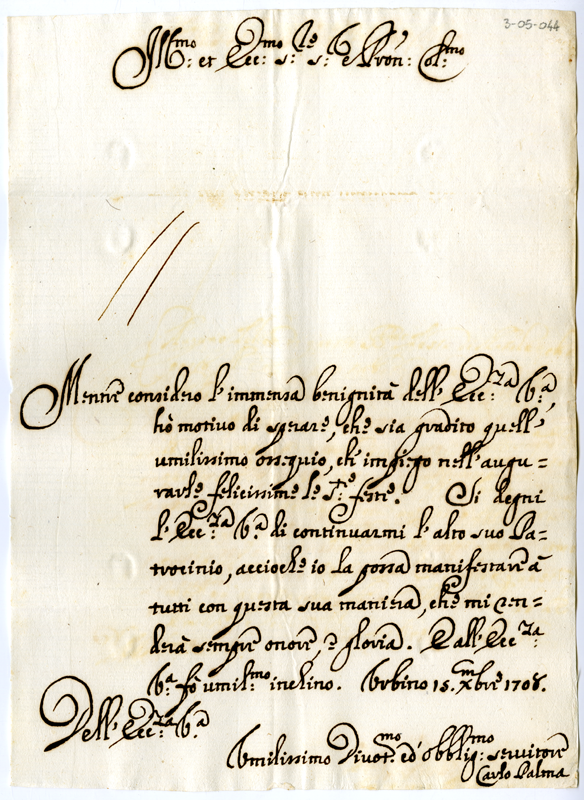 3-05-044
Ill:mo et Ecc:mo S:re S:r e Pron: Col:mo
Mentre considero l'immensa benignità dell'Ecc:za V:a,
hò motivo di sperare, che sia gradito quell'
umilissimo ossequio, ch'impiego nell'augu=
rarle felicissime le S:te feste. Si degni
l'Ecc:za V:a di continuarmi l'alto suo Pa=
trocinio, accioche io la possa manifestare à
tutti con questa sua maniera, che mi ren=
derà sempre onore, e gloria. E all'Ecc:za
V:a fò umil:mo inchino. Urbino 15. Xmbre 1708.
Dell'Ecc:za V:a
Umilissimo Divot:mo ed obblig:mo servitore
Carlo Palma